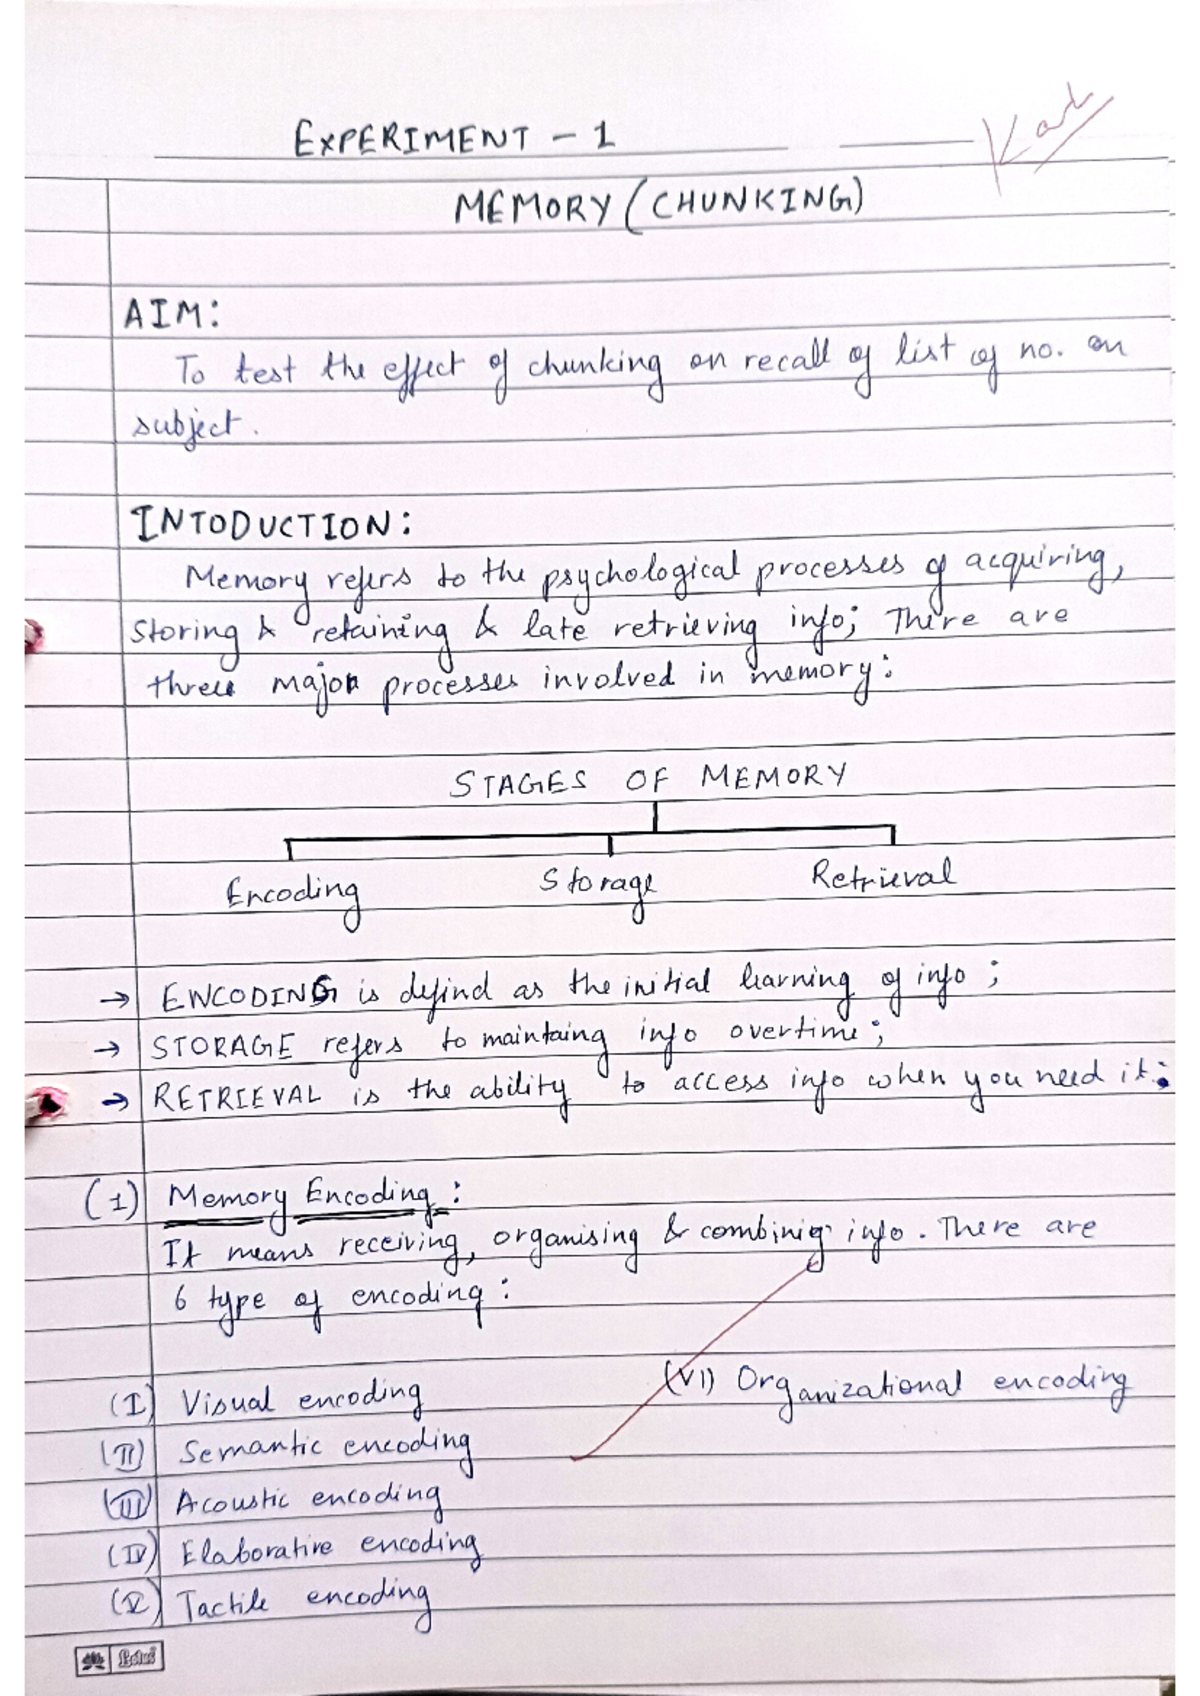 EXPERIMENT - 1
MEMORY (CHUNKING)
AIM:
To test the effect of chunking on recall of list of no. on
subject.
INTODUCTION:
Memory refers to the psychological processes of acquiring,
storing & retaining & late retrieving info; There are
three major processes involved in memory:
STAGES OF MEMORY
Encoding Storage Retrieval
→ ENCODING is defind as the initial learning of info ;
→ STORAGE refers to maintaing info overtime ;
→ RETRIEVAL is the ability to access info when you need it;
(1) Memory Encoding :
It means receiving, organising & combinig info. There are
6 type of encoding :
(I) Visual encoding (VI) Organizational encoding
(II) Semantic encoding
(III) Acoustic encoding
(IV) Elaborative encoding
(V) Tactile encoding
Lotus